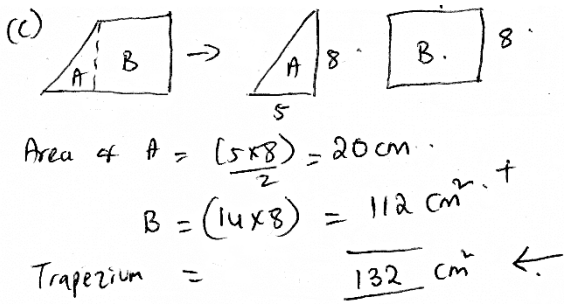 (C) A B → A 8 . B. 8 .
5
Area of A = (5x8)/2 = 20 cm .
B = (14x8) = 112 cm². +
Trapezium = 132 cm² ←.